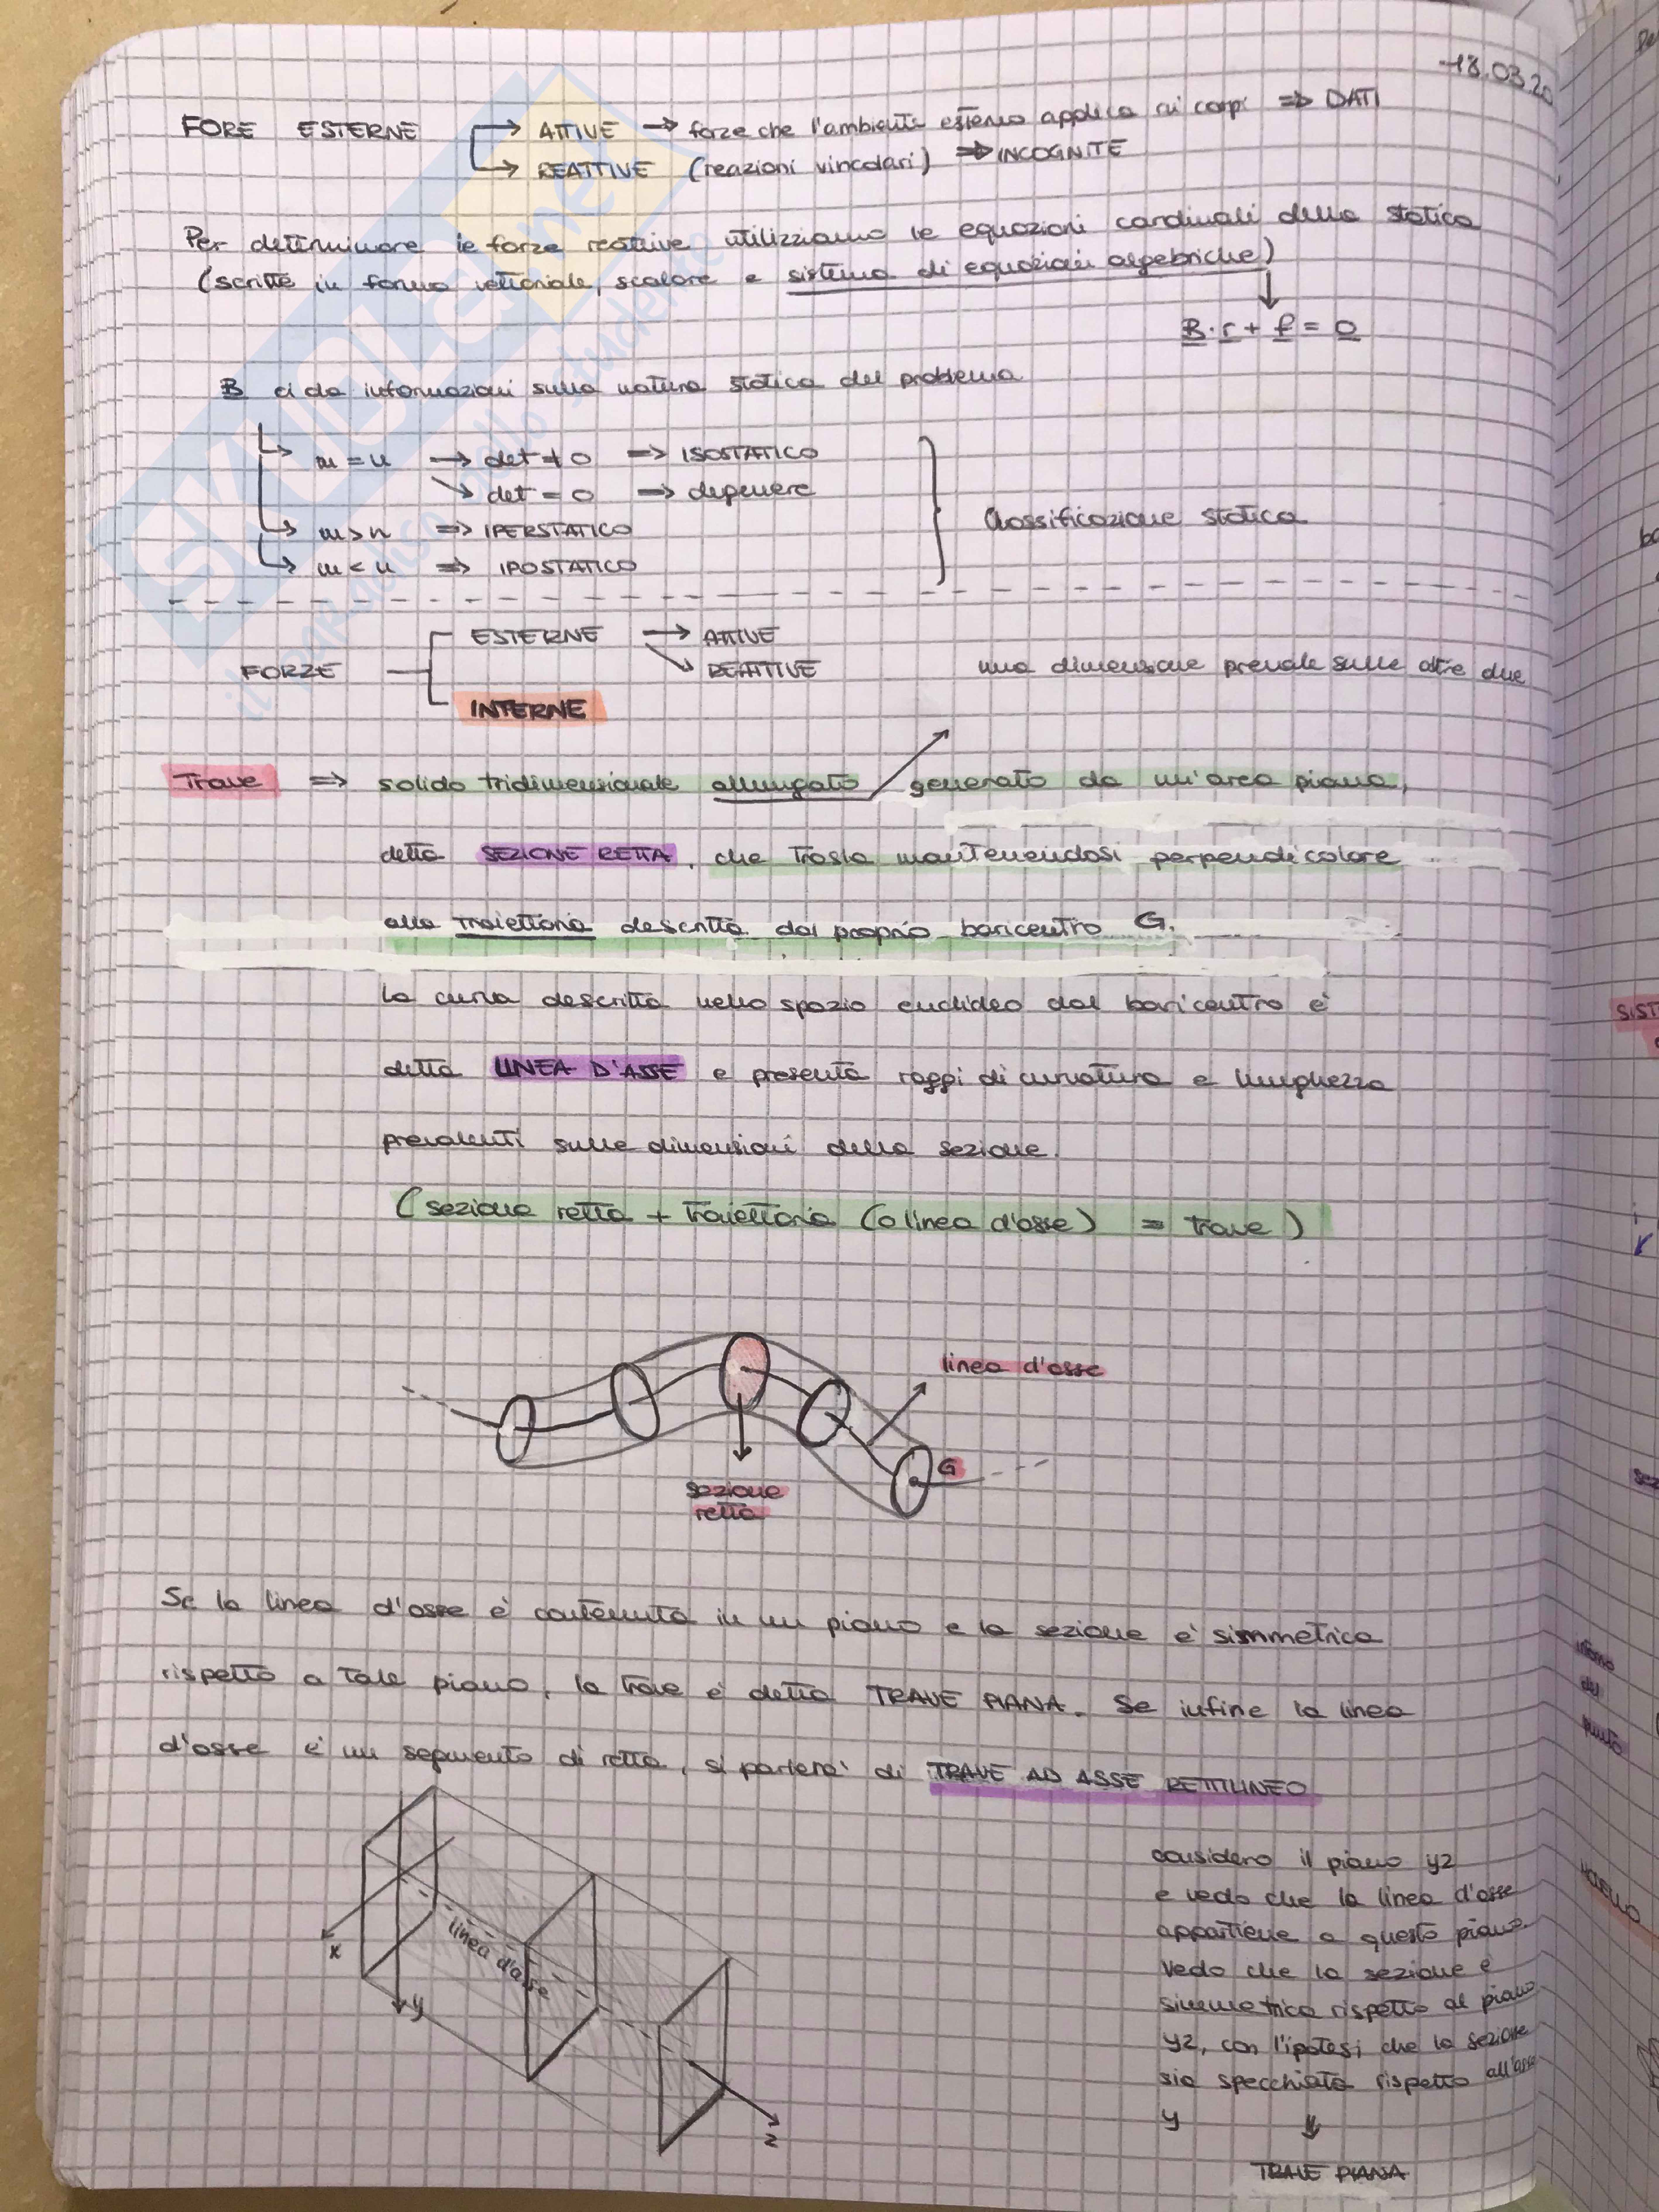 18.03.20
FORE ESTERNE → ATTIVE → forze che l'ambiente esterno applica sui corpi ⇒ DATI
→ REATTIVE (reazioni vincolari) ⇒ INCOGNITE
Per determinare le forze reattive utilizziamo le equazioni cardinali della statica
(scritte in forma vettoriale, scalare e sistema di equazioni algebriche)
B · r + f = 0
B ci da informazioni sulla natura statica del problema
m = n → det ≠ 0 ⇒ ISOSTATICO
det = 0 ⇒ degenere
m > n ⇒ IPERSTATICO
m < n ⇒ IPOSTATICO
Classificazione statica
FORZE
ESTERNE → ATTIVE
REATTIVE
INTERNE
una dimensione prevale sulle altre due
Trave ⇒ solido tridimensionale allungato generato da un'area piana,
detta SEZIONE RETTA, che trasla mantenendosi perpendicolare
alla traiettoria descritta dal proprio baricentro G.
La curva descritta nello spazio euclideo dal baricentro è
detta LINEA D'ASSE e presenta raggi di curvatura e lunghezza
prevalenti sulle dimensioni della sezione.
(sezione retta + traiettoria (o linea d'asse) = trave)
linea d'asse
G
sezione
retta
Se la linea d'asse è contenuta in un piano e la sezione è simmetrica
rispetto a tale piano, la trave è detta TRAVE PIANA. Se infine la linea
d'asse è un segmento di retta, si parlerà di TRAVE AD ASSE RETTILINEO
x
y
linea d'asse
z
considero il piano yz
e vedo che la linea d'asse
appartiene a questo piano.
Vedo che la sezione è
simmetrica rispetto al piano
yz, con l'ipotesi che la sezione
sia specchiata rispetto all'asse
y
⇓
TRAVE PIANA
SIST
sez
intorno
del
punto
MODELLO
SKUOLA.net
il paradiso dello studente